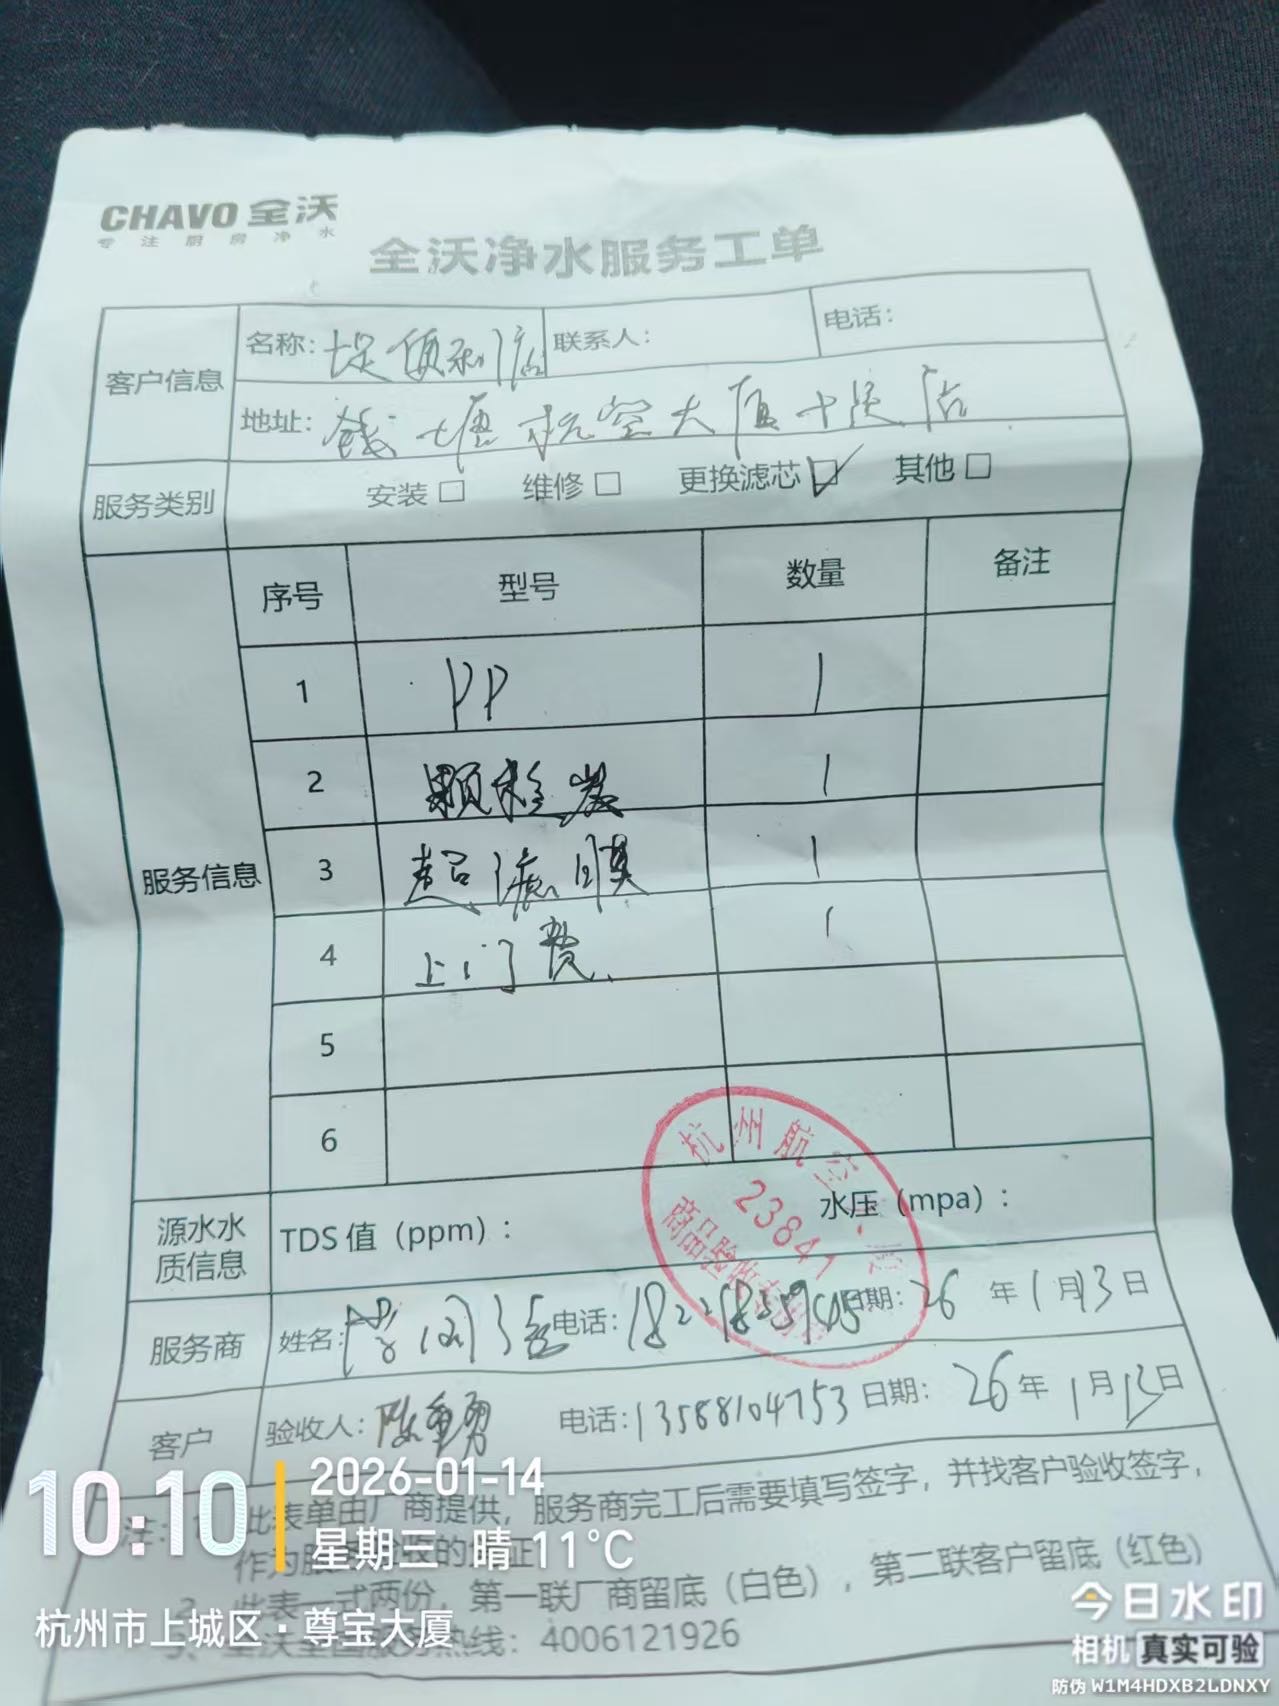 CHAVO 全沃
专注厨房净水
全沃净水服务工单
客户信息 名称: 便利店 联系人: 电话:
地址: 钱塘航空大厦十足店
服务类别 安装□ 维修□ 更换滤芯☑ 其他□
服务信息 序号 型号 数量 备注
1 PP 1
2 颗粒炭 1
3 超滤膜 1
4 上门费 1
5
6
源水水质信息 TDS 值(ppm): 水压(mpa):
杭州航空
23841
商品验收专
服务商 姓名: 电话: 日期: 26 年 1 月 13 日
客户 验收人: 陈重勇 电话: 13588104753 日期: 26 年 1 月 13 日
注: 此表单由厂商提供,服务商完工后需要填写签字,并找客户验收签字,
作为服
此表一式两份,第一联厂商留底(白色),第二联客户留底(红色)
3、全沃全国服务热线:4006121926
10:10
2026-01-14
星期三 晴 11°C
杭州市上城区·尊宝大厦
今日水印
相机 真实可验
防伪 W1M4HDXB2LDNXY